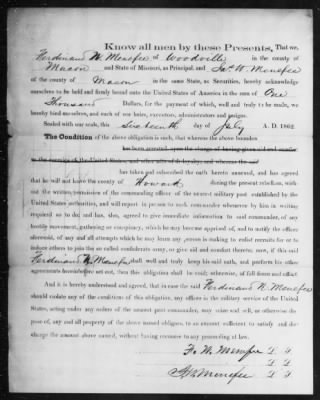 Know all men by these Presents, That we,
Ferdinand W. Menefee of Woodville in the county of
Macon and State of Missouri, as Principal, and Jas W. Menefee
of the county of Macon in the same State, as Securities, hereby acknowledge
ourselves to be held and firmly bound unto the United States of America in the sum of One
Thousand Dollars, for the payment of which, well and truly to be made, we
hereby bind ourselves, and each of our heirs, executors, administrators and assigns.
Sealed with our seals, this Sixteenth day of July A. D. 1862
The Condition of the above obligation is such, that whereas the above bounden
has been arrested, upon the charge of having given aid and comfort
to the enemies of the United States, and other acts of disloyalty; and whereas the said
has taken and subscribed the oath hereto annexed, and has agreed
that he will not leave the county of Howard during the present rebellion, with-
out the written permission of the commanding officer of the nearest military post established by the
United States authorities, and will report in person to such commander whenever by him in writing
required so to do; and has, also, agreed to give immediate information to said commander, of any
hostile movement, gathering or conspiracy, which he may become apprised of, and to notify the officer
aforesaid, of any and all attempts which he may learn any person is making to enlist recruits for or to
induce others to join the so called confederate army, or give aid and comfort thereto; now, if this said
Ferdinand W. Menefee shall well and truly keep his said oath, and perform his other
agreements hereinbefore set out, then this obligation shall be void; otherwise, of full force and effect.
And it is hereby understood and agreed, that in case the said Ferdinand W. Menefee
should violate any of the conditions of this obligation, any officer in the military service of the United
States, acting under any orders of the nearest post commander, may seize and sell, or otherwise dis-
pose of, any and all property of the above named obligors, to an amount sufficient to satisfy and dis-
charge the amount above named, without having recourse to any proceeding at law.
F. W. Menefee
Menefee